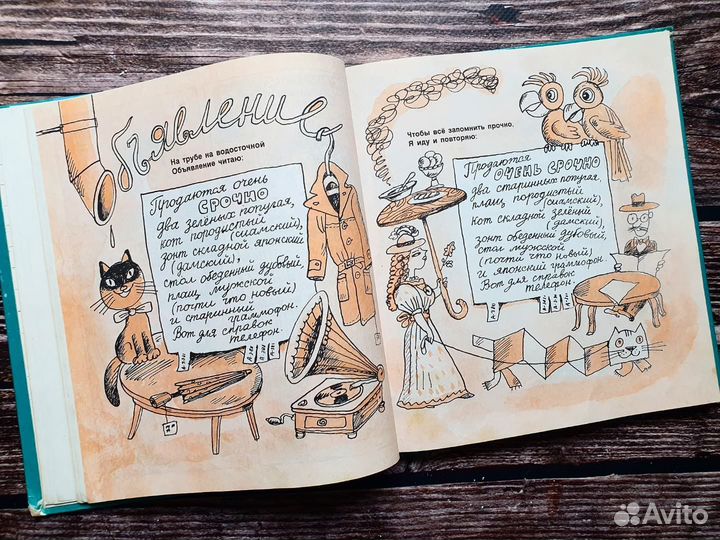 Объявление
На трубе на водосточной
Объявление читаю:
Продаются очень
СРОЧНО
два зелёных попугая,
кот породистый
(сиамский),
зонт складной японский
(дамский),
стол обеденный дубовый,
плащ мужской
(почти что новый)
и старинный
граммофон.
Вот для справок
телефон.
Чтобы всё запомнить прочно,
Я иду и повторяю:
Продаются
ОЧЕНЬ СРОЧНО
два старинных попугая,
плащ породистый
(сиамский),
кот складной зелёный
(дамский),
зонт обеденный дубовый,
стол мужской
(почти что новый)
и японский граммофон.
Вот для справок
телефон.
Avito